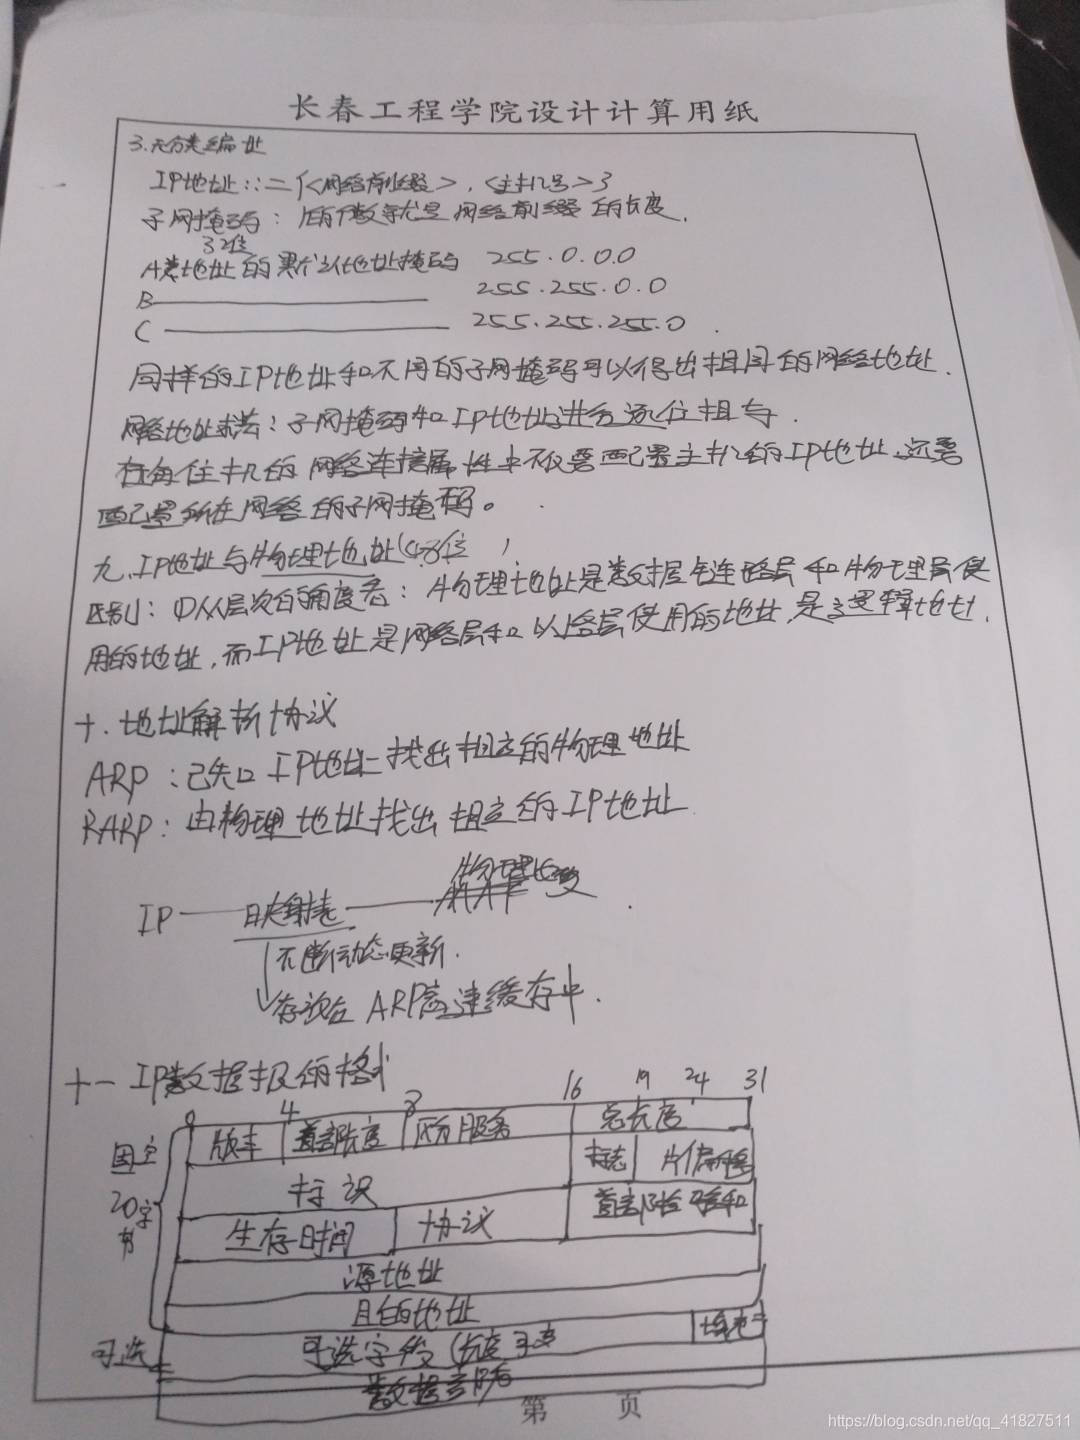 长春工程学院设计计算用纸
3.无分类编址
IP地址::=二{<网络前缀>,<主机号>}
子网掩码: 1的个数就是网络前缀的长度.
32位
A类地址的默认地址掩码 255.0.0.0
B 255.255.0.0
C 255.255.255.0.
同样的IP地址和不同的子网掩码可以得出相同的网络地址.
网络地址求法:子网掩码和IP地址进行逐位相与.
在每住机的网络连接属性中不仅要配置主机的IP地址,还要
配置所在网络的子网掩码。
九.IP地址与物理地址(48位)
区别:①从层次的角度看:物理地址是数据链路层和物理层使
用的地址,而IP地址是网络层和以上各层使用的地址,是逻辑地址.
十.地址解析协议
ARP:已知IP地址找出相应的物理地址
RARP:由物理地址找出相应的IP地址
IP 映射表
不断动态更新.
存放在ARP高速缓存中.
十一 IP数据报的格式
0 4 8 16 19 24 31
版本 首部长度 区分服务 总长度
固定
20字节
标识 标志 片偏移
生存时间 协议 首部检验和
源地址
目的地址
可选 可选字段(长度可变 填充
数据部分
第 页
https://blog.csdn.net/qq_41827511